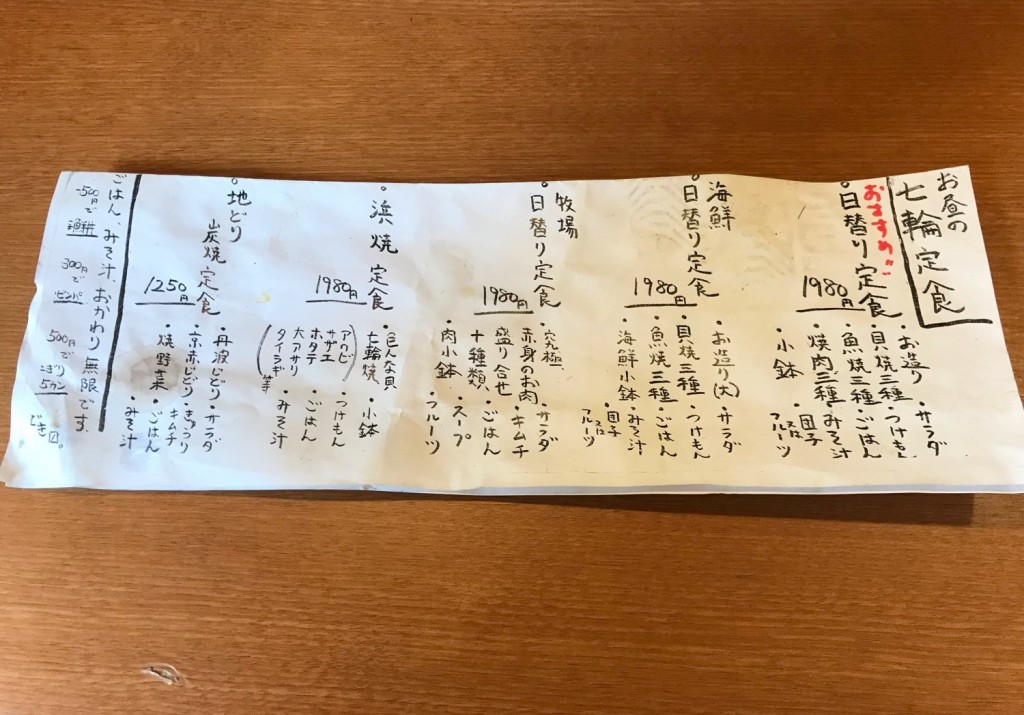 お昼の
七輪定食
おすすめ!!
・日替り定食
1980円
・お造り
・貝焼三種
・魚焼三種
・焼肉三種
・小鉢
・サラダ
・つけもん
・ごはん
・みそ汁
・団子
又は
フルーツ
海鮮
・日替り定食
1980円
・お造り(大)
・貝焼三種
・魚焼三種
・海鮮小鉢
・サラダ
・つけもん
・ごはん
・みそ汁
・団子
又は
フルーツ
牧場
・日替り定食
1980円
・究極、
赤身のお肉
盛り合せ
十種類、
・肉小鉢
・サラダ
・キムチ
・ごはん
・スープ
・フルーツ
・浜焼定食
1980円
・色んな貝
七輪焼
(アワビ
サザエ
ホタテ
大アサリ
タイラギ等)
・小鉢
・つけもん
・ごはん
・みそ汁
・地どり
炭焼定食
1250円
・丹波じどり
・京赤じどり
・焼野菜
・サラダ
・きゅうり
キムチ
・ごはん
・みそ汁
ごはん、みそ汁、おかわり無限です。
500円で
300円で
ビンパ
500円で
にぎり
5カン
でき〼。